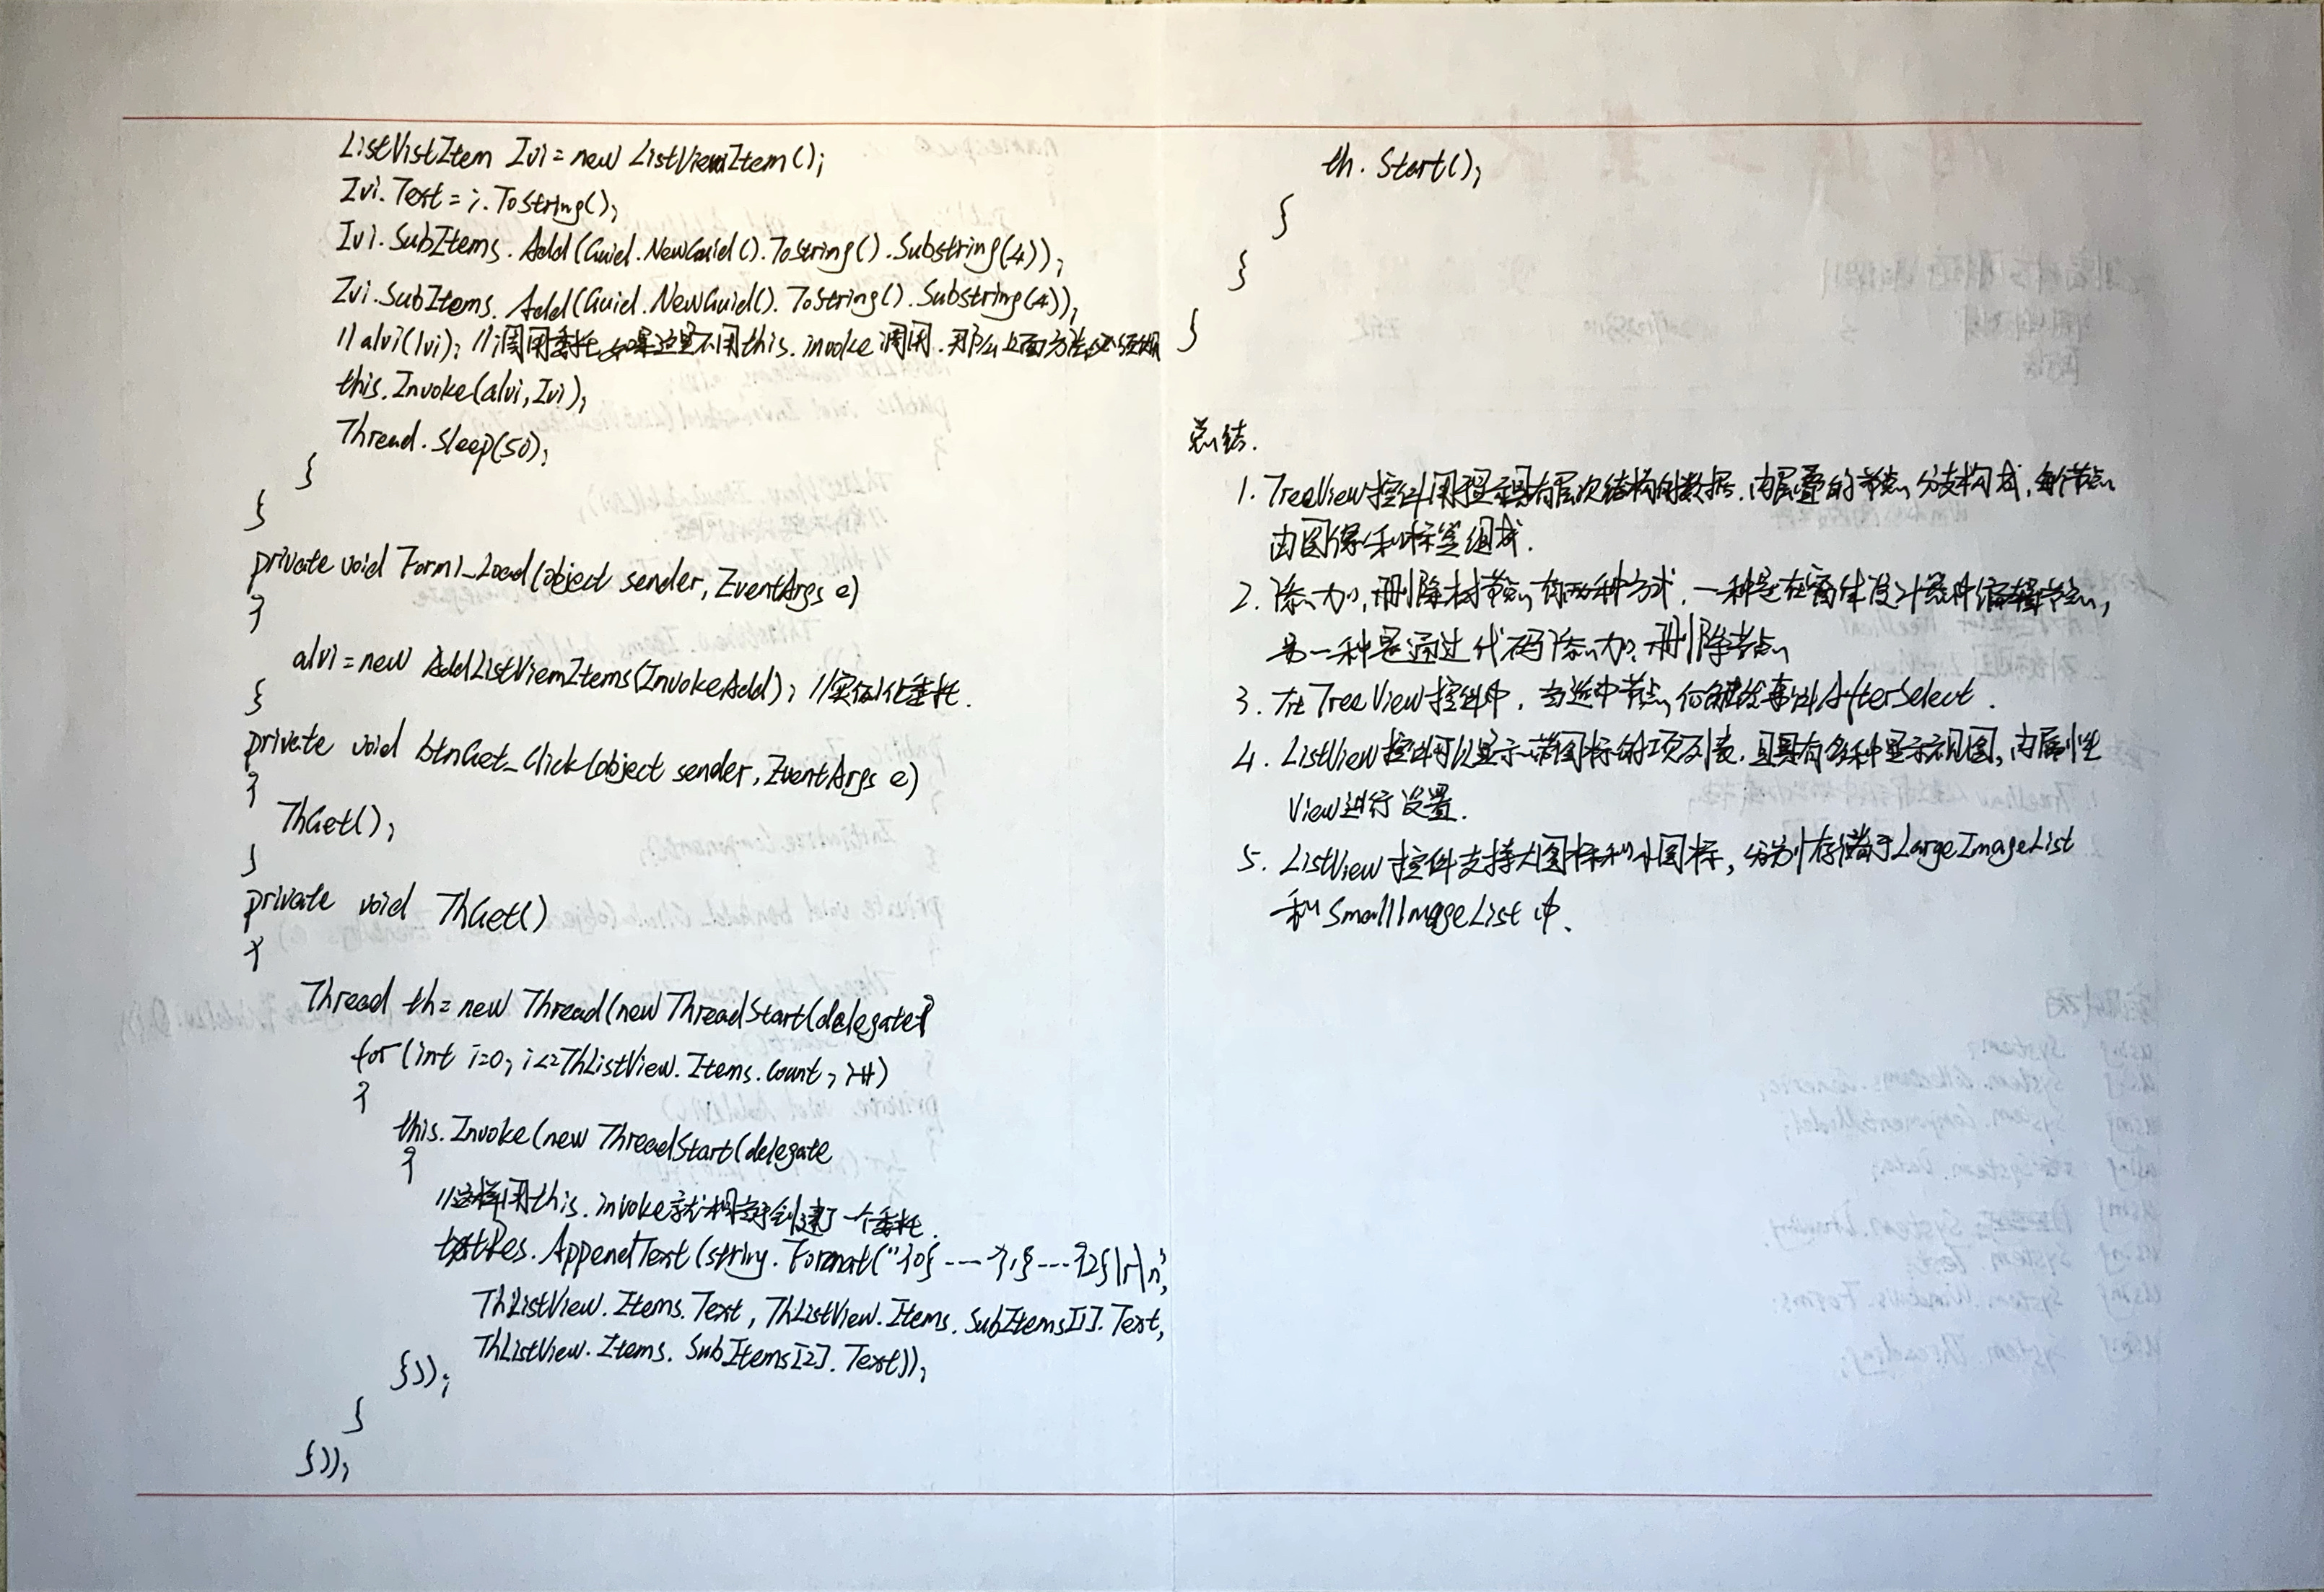 ListVistItem Ivi = new ListViewItem();
Ivi.Text = i.ToString();
Ivi.SubItems.Add(Guid.NewGuid().ToString().Substring(4));
Ivi.SubItems.Add(Guid.NewGuid().ToString().Substring(4));
//alvi(lvi); //调用委托,如果这里不用this.invoke调用.那么上面方法必须
this.Invoke(alvi,Ivi);
Thread.Sleep(50);
}
}
private void Form1_Load(object sender, EventArgs e)
{
alvi = new AddListViemItems(InvokeAdd); //实例化委托.
}
private void btnGet_Click(object sender, EventArgs e)
{
ThGet();
}
private void ThGet()
{
Thread th = new Thread(new ThreadStart(delegate{
for (int i=0; i<=ThListView.Items.Count; i++)
{
this.Invoke(new ThreadStart(delegate
{
//这样用this.invoke就相当于创建了一个委托.
txtRes.AppendText(string.Format("{0}----{1}---{2}\r\n",
ThListView.Items.Text, ThListView.Items.SubItems[1].Text,
ThListView.Items.SubItems[2].Text));
}));
}
}));
th.Start();
}
}
}
总结.
1. TreeView控件用来显示具有层次结构的数据.由层叠的节点分支构成,每个节点
由图像和标签组成.
2. 添加,删除树节点有两种方式.一种是在窗体设计器中编辑节点,
另一种是通过代码添加、删除节点
3. 在TreeView控件中,当选中节点,会触发事件AfterSelect.
4. ListView控件可以显示带图标的项列表.且具有多种显示视图,由属性
View进行设置.
5. ListView控件支持大图标和小图标,分别存储于LargeImageList
和SmallImageList中.